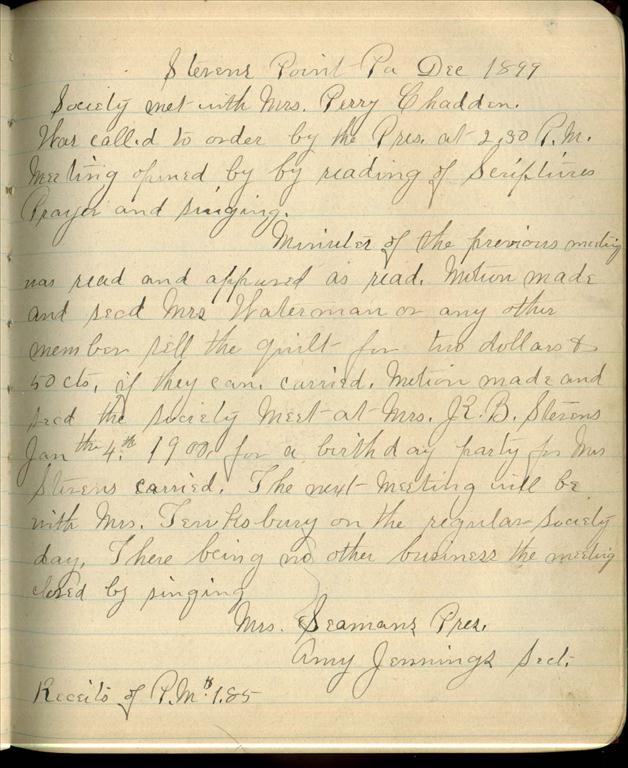 Stevens Point Pa Dec 1899
Society met with Mrs. Perry Chadden.
Was called to order by the Pres. at 2,30 P.M.
Meeting opened by by reading of Scriptures
Prayer and singing.
Minutes of the previous meeting
was read and approved as read. Motion made
and secd Mrs Waterman or any other
member sell the quilt for two dollars &
50 cts, if they can. carried. Motion made and
secd the society Meet at Mrs. J.B. Stevens
Jan the 4th 1900, for a birthday party for Mrs
Stevens carried. The next meeting will be
with Mrs. Tewksbury on the regular society
day. There being no other business the meeting
closed by singing
Mrs. Seamans Pres.
Amy Jennings Sect.
Receits of P.M. $1.85